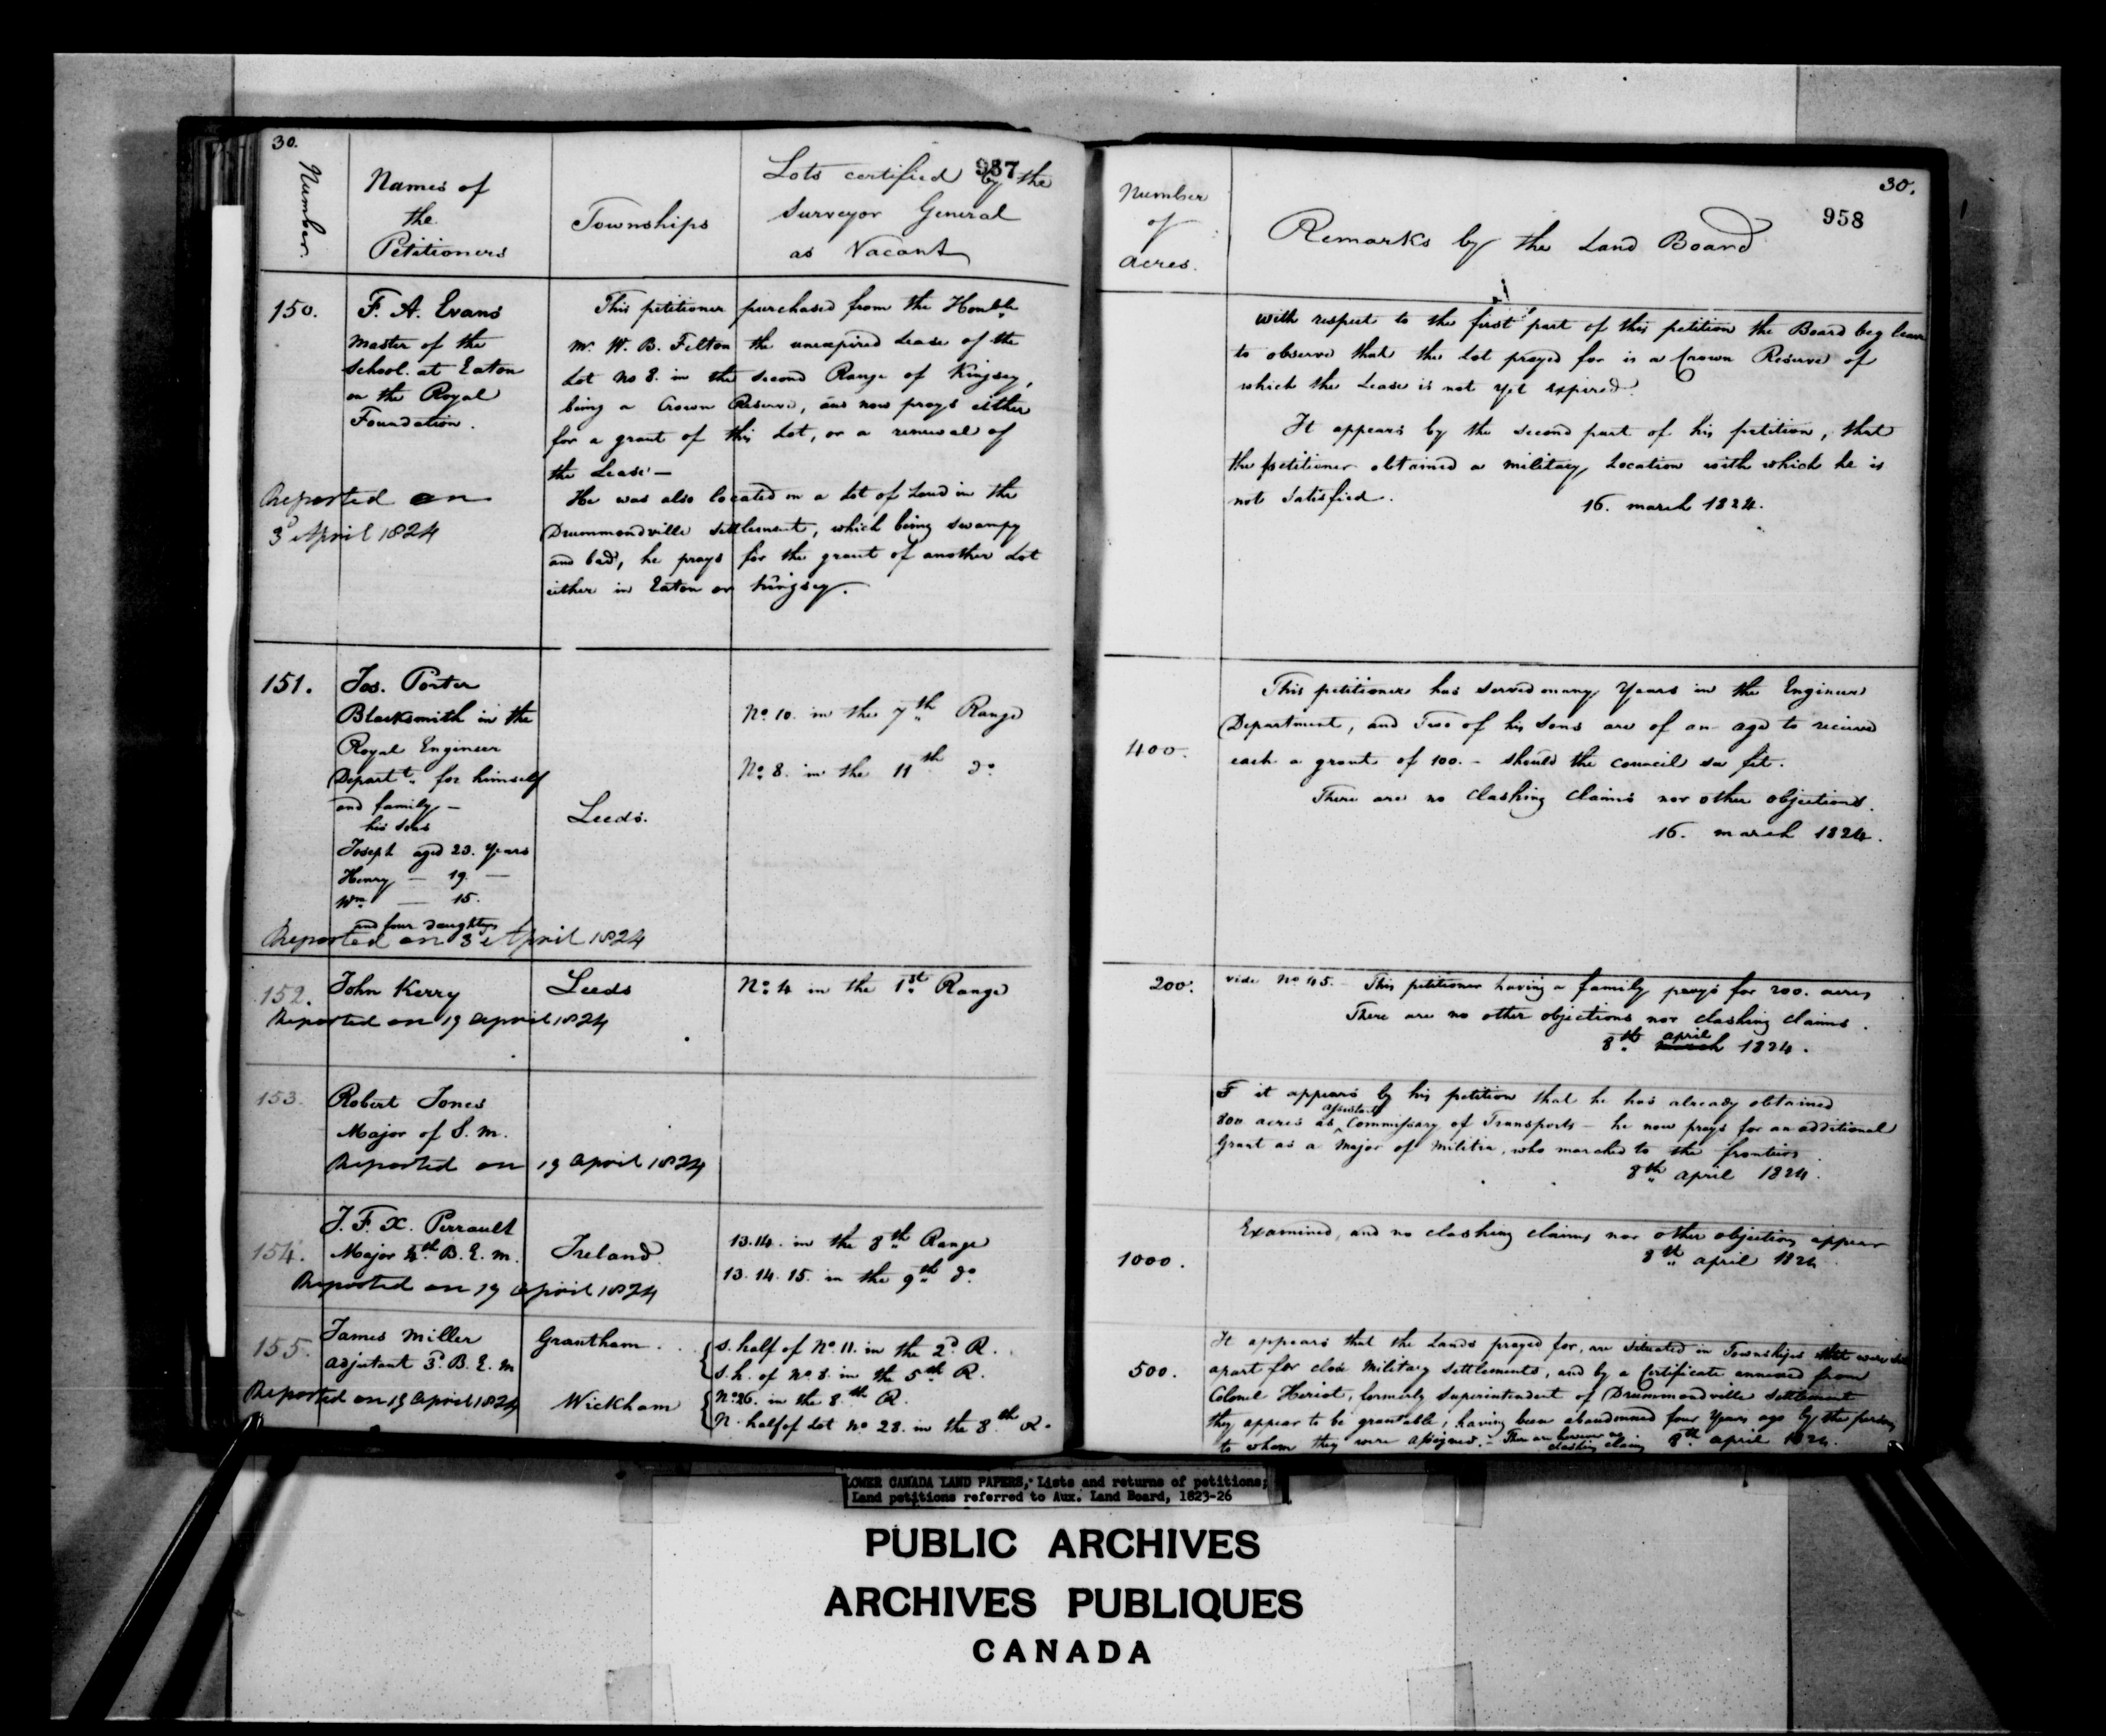 30.
957
Number
Names of
the
Petitioners
Townships
Lots certified by the
Surveyor General
as Vacant
150.
F. A. Evans
Master of the
School at Eaton
on the Royal
Foundation.
Reported on
3d April 1824
This petitioner purchased from the Honble
Mr. W. B. Felton the unexpired Lease of the
Lot No 8. in the second Range of Kingsey,
being a Crown Reserve, and now prays either
for a grant of this Lot, or a renewal of
the Lease —
He was also located on a Lot of Land in the
Drummondville Settlement, which being swampy
and bad, he prays for the grant of another Lot
either in Eaton or Kingsey.
151.
Jos. Porter
Blacksmith in the
Royal Engineer
Departt. for himself
and family —
his sons
Joseph aged 23. Years
Henry — 19. —
Wm — 15.
and four daughters
Reported on 3d April 1824
Leeds.
No. 10. in the 7th Range
No. 8. in the 11th do.
152.
John Kerry
Reported on 19 April 1824
Leeds
No. 4 in the 1st Range
153.
Robert Jones
Major of S. M.
Reported on 19 April 1824
154.
J. F. X. Perrault
Major 4th B. E. M.
Reported on 19 April 1824
Ireland.
13.14. in the 8th Range
13.14.15. in the 9th do.
155.
James Miller
Adjutant 3d B. E. M
Reported on 19 April 1824
Grantham . . .
Wickham
S. half of No. 11. in the 2d R.
S. h. of No. 8. in the 5th R.
No. 26. in the 8th R.
N. half of Lot No. 28. in the 8th R.
30.
958
Number
of
Acres.
Remarks by the Land Board
With respect to the first part of this petition the Board beg leave
to observe that the Lot prayed for is a Crown Reserve of
which the Lease is not yet expired.
It appears by the second part of his petition, that
the petitioner obtained a military Location with which he is
not satisfied.
16. March 1824.
400.
This petitioner has served many Years in the Engineer
Department, and Two of his Sons are of an age to receive
each a grant of 100. — should the council see fit.
There are no clashing claims nor other objections.
16. March 1824.
200.
vide No. 45. — This petitioner having a family prays for 200. acres
There are no other objections nor clashing claims.
8th March april 1824.
F it appears by his petition that he has already obtained
800 acres as assistant Commissary of Transports — he now prays for an additional
Grant as a Major of Militia, who marched to the frontiers.
8th April 1824.
1000.
Examined, and no clashing claims nor other objections appear
8th April 1824
500.
It appears that the Lands prayed for, are situated in Townships that were set
apart for close Military Settlements, and by a Certificate annexed from
Colonel Heriot, formerly Superintendent of Drummondville Settlement
they appear to be grantable, having been abandonned four Years ago by the persons
to whom they were assigned. — There are however no clashing claims 8th April 1824.
LOWER CANADA LAND PAPERS, Lists and returns of petitions;
Land petitions referred to Aux. Land Board, 1823-26
PUBLIC ARCHIVES
ARCHIVES PUBLIQUES
CANADA